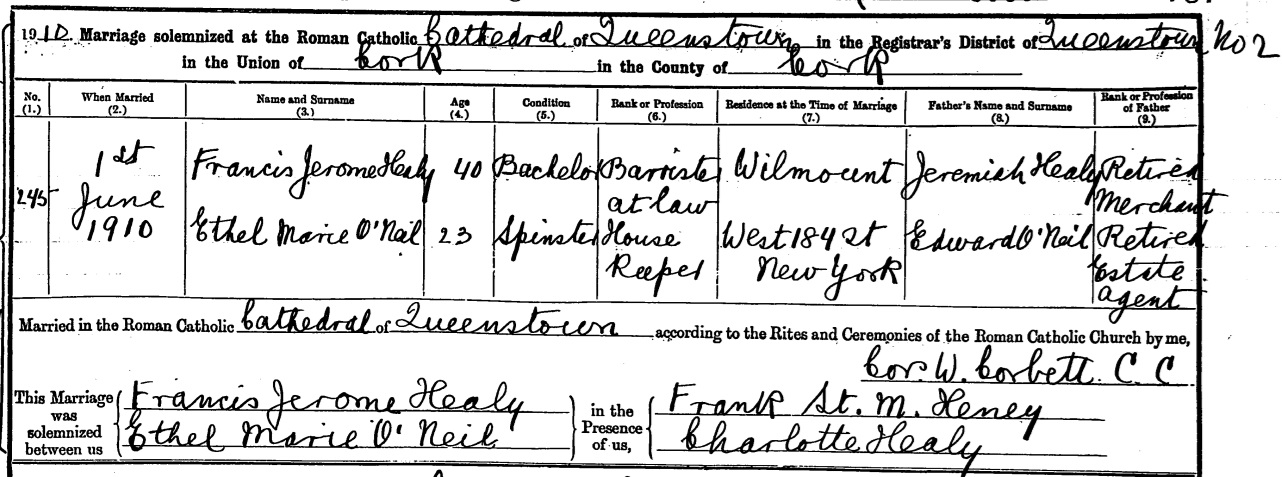 1910. Marriage solemnized at the Roman Catholic Cathedral of Queenstown in the Registrar's District of Queenstown No 2
in the Union of Cork in the County of Cork
No. (1.) When Married (2.) Name and Surname (3.) Age (4.) Condition (5.) Rank or Profession (6.) Residence at the Time of Marriage (7.) Father's Name and Surname (8.) Rank or Profession of Father (9.)
245 1st June 1910 Francis Jerome Healy 40 Bachelor Barrister at law Wilmount Jeremiah Healy Retired Merchant
Ethel Marie O'Neil 23 Spinster House Keeper West 184 st New York Edward O'Neil Retired Estate agent
Married in the Roman Catholic Cathedral of Queenstown according to the Rites and Ceremonies of the Roman Catholic Church by me,
Cors. W. Corbett. C C
This Marriage was solemnized between us
Francis Jerome Healy
Ethel Marie O'Neil
in the Presence of us,
Frank St. M. Heney
Charlotte Healy